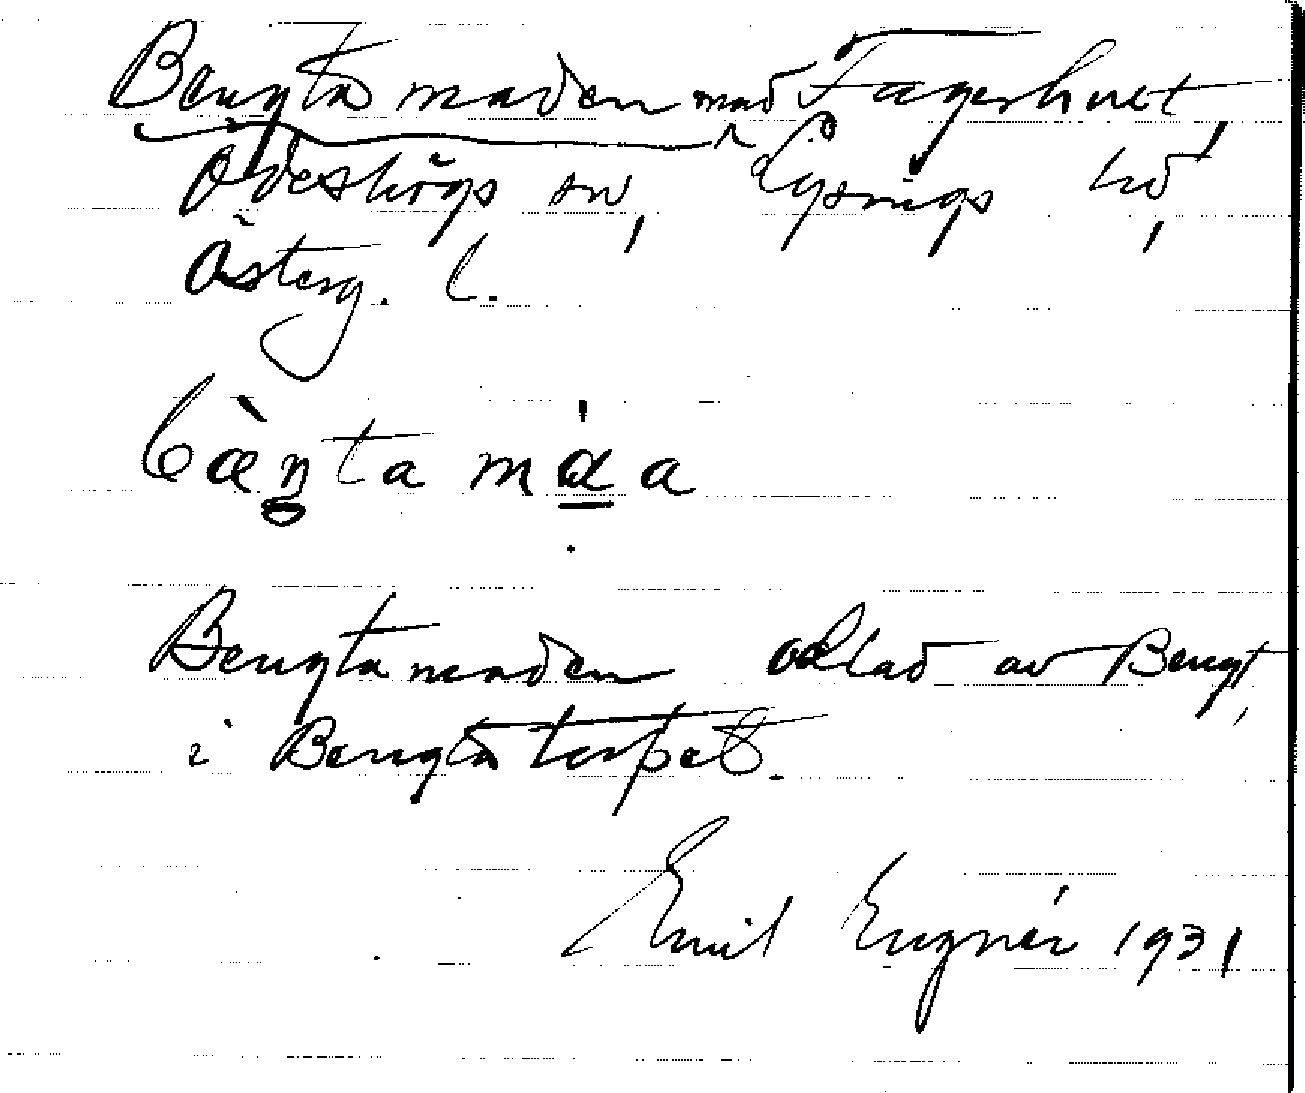 Bengtamaden mad Fagerhult,
Ödeshögs sn, Lysings hd,
Österg. l.
bàŋta màa
Bengtamaden odlad av Bengt,
i Bengtatorpet.
Emil Engnér 1931